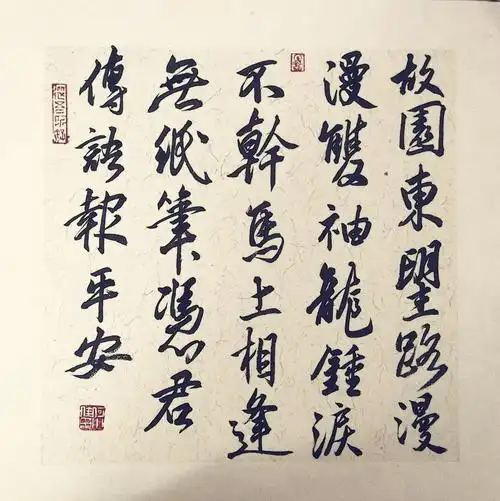 故園東望路漫
漫雙袖龍鍾淚
不幹馬上相逢
無紙筆憑君
傳語報平安